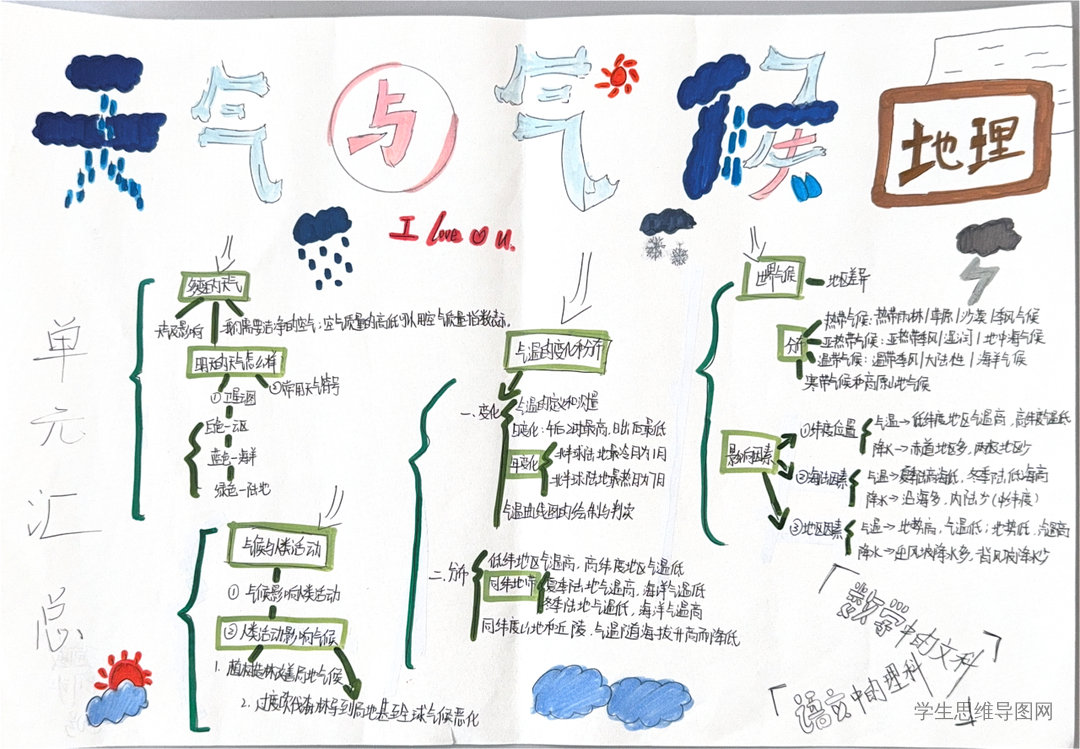 天气与气候
地理
I love u.
单元汇总
多变的天气
天气及影响
我们需要洁净的空气：空气质量的高低可以用空气质量指数表示。
明天的天气怎么样
①卫星云图
②常用天气符号
白色—云区
蓝色—海洋
绿色—陆地
气候与人类活动
①气候影响人类活动
②人类活动影响气候
1. 植树造林改善局地气候
2. 过度砍伐森林导致局地甚至全球气候恶化
气温的变化和分布
一、变化
气温的定义和测量
日变化：午后2时最高，日出后最低
年变化
北半球陆地最冷月为1月
北半球陆地最热月为7月
气温曲线图的绘制与判读
二、分布
低纬地区气温高，高纬度地区气温低
同纬地带
夏季陆地气温高，海洋气温低
冬季陆地气温低，海洋气温高
同纬度山地和丘陵，气温随海拔升高而降低
世界气候
地区差异
分布
热带气候：热带雨林|草原|沙漠|季风气候
亚热带气候：亚热带季风|湿润|地中海气候
温带气候：温带季风|大陆性|海洋气候
寒带气候和高原山地气候
影响因素
①纬度位置
气温→低纬度地区气温高，高纬度温低
降水→赤道地区多，两极地区少
②海陆因素
气温→夏季陆高海低，冬季陆低海高
降水→沿海多，内陆少（中纬度）
③地区因素
气温→地势高，气温低；地势低，气温高
降水→迎风坡降水多，背风坡降水少
「数字中的文科
「语言中的理科」
学生思维导图网